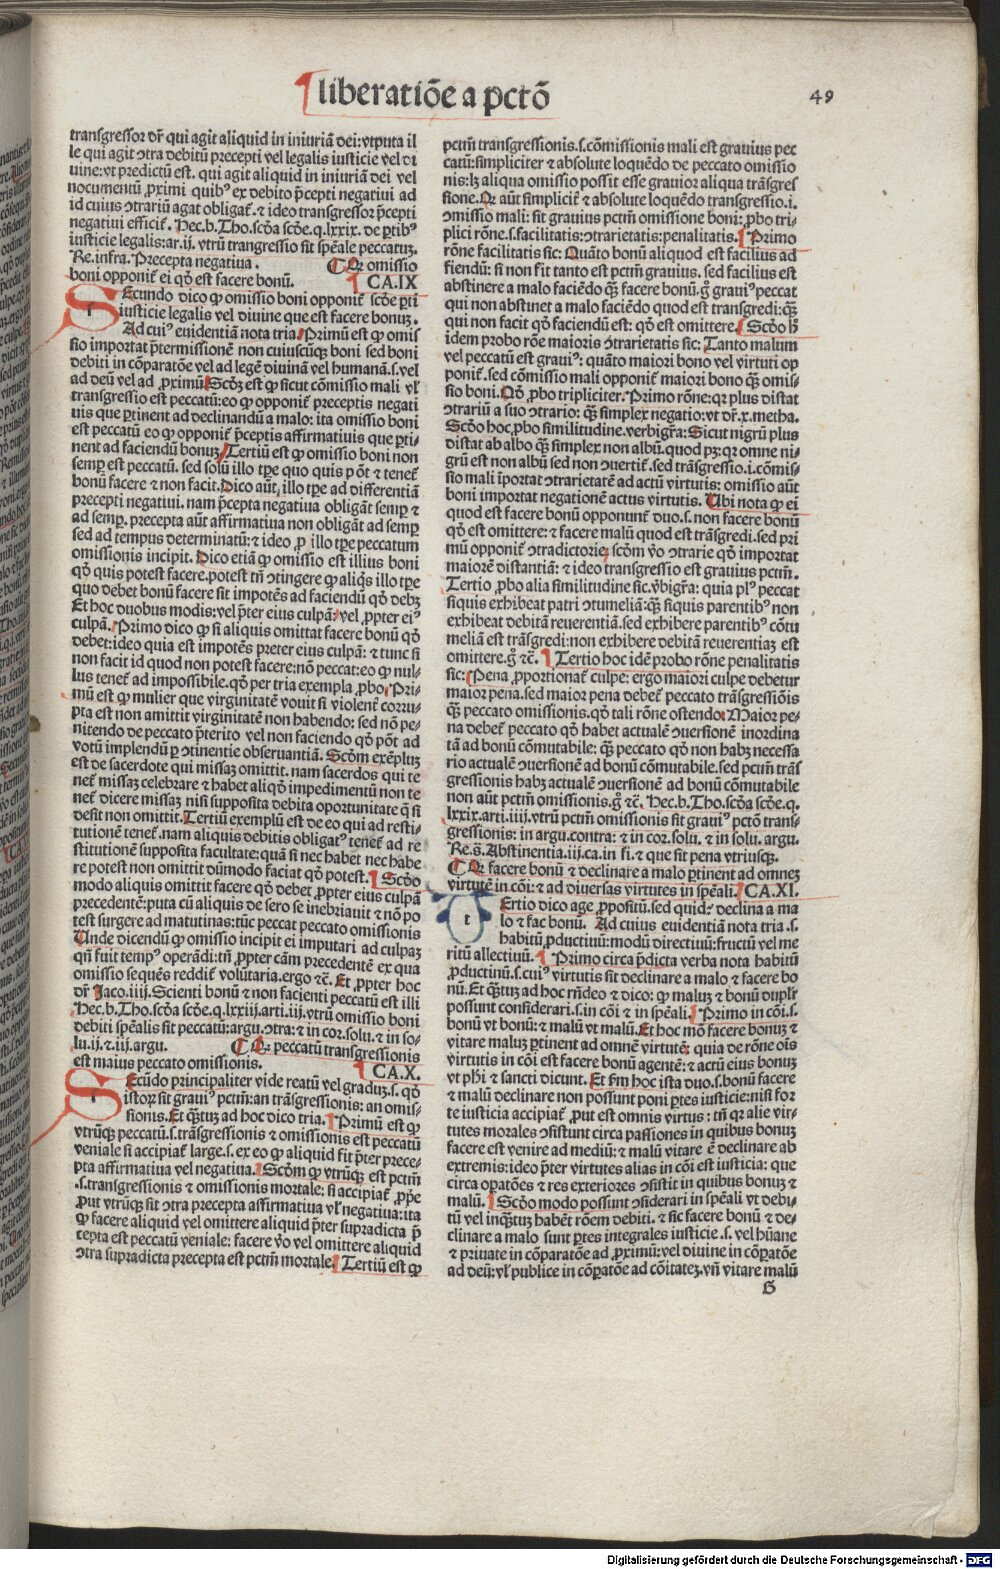 liberatiōe a pctō
49
transgressor dr̄ qui agit aliquid in iniuriā dei: vtputa il
le qui agit ↄtra debitū precepti vel legalis iusticie vel di
uine: vt predictū est. qui agit aliquid in iniuriā dei vel
nocumentū proximi quibꝰ ex debito p̄cepti negatiui ad
id cuius ↄtrariū agat obligat̄. ⁊ ideo transgressor p̄cepti
negatiui efficit̄. Hec.b.Tho.scđa scđe.q.lxxix. de ꝑtibꝰ
iusticie legalis: ar.ij. vtrū trangressio sit spēale peccatuꝫ.
Re.infra. Precepta negatiua. ¶ Qꝛ omissio
boni opponit̄ ei qđ est facere bonū. ¶ CA.IX
SEcundo dico ꝙ omissio boni opponit̄ scđe ꝑti
iusticie legalis vel diuine que est facere bonuꝫ.
Ad cuiꝰ euidentiā nota tria. Primū est ꝙ omis
sio importat p̄termissionē non cuiuscūqꝫ boni sed boni
debiti in cōparatōe vel ad legē diuinā vel humanā.s.vel
ad deū vel ad proximū. Scđꝫ est ꝙ sicut cōmissio mali vl̄
transgressio est peccatū: eo ꝙ opponit̄ preceptis negati
uis que ꝑtinent ad declinandū a malo: ita omissio boni
est peccatū eo ꝙ opponit̄ p̄ceptis affirmatiuis que ꝑti-
nent ad faciendū bonuꝫ. Tertiū est ꝙ omissio boni non
semꝑ est peccatū. sed solū illo tꝑe quo quis pōt ⁊ tenet̄
bonū facere ⁊ non facit. Dico aūt, illo tꝑe ad differentiā
precepti negatiui. nam p̄cepta negatiua obligāt semꝑ ⁊
ad semꝑ. precepta aūt affirmatiua non obligāt ad semꝑ
sed ad tempus determinatū: ⁊ ideo pro illo tꝑe peccatum
omissionis incipit. Dico etiā ꝙ omissio est illius boni
qđ quis potest facere. potest tn̄ ↄtingere ꝙ aliq̄s illo tꝑe
quo debet bonū facere sit impotēs ad faciendū qđ debꝫ
Et hoc duobus modis: vel p̄ter eius culpā: vel propter eiꝰ
culpā. Primo dico ꝙ si aliquis omittat facere bonū qđ
debet: ideo quia est impotēs preter eius culpā: ⁊ tunc si
non facit id quod non potest facere: nō peccat: eo ꝙ nul-
lus tenet̄ ad impossibile. qđ per tria exempla probo. Pri-
mū est ꝙ mulier que virginitatē vouit si violent̄ corru-
pta est non amittit virginitatē non habendo: sed nō pe-
nitendo de peccato p̄terito vel non faciendo qđ pōt ad
votū implendū ꝑ ↄtinentie obseruantiā. Scđm exēpluꝫ
est de sacerdote qui missaꝫ omittit. nam sacerdos qui te
net̄ missaꝫ celebrare ⁊ habet aliqđ impedimentū non te
net̄ dicere missaꝫ nisi supposita debita oportunitate q̄ si
desit non omittit. Tertiū exemplū est de eo qui ad resti-
tutionē tenet̄. nam aliquis debitis obligatꝰ tenet̄ ad re
stitutionē supposita facultate: quā si nec habet nec habe
re potest non omittit dūmodo faciat qđ potest. ¶ Scđo
modo aliquis omittit facere qđ debet propter eius culpā
precedentē: puta cū aliquis de sero se inebriauit ⁊ nō po
test surgere ad matutinas: tūc peccat peccato omissionis
Unde dicendū ꝙ omissio incipit ei imputari ad culpaꝫ
qn̄ fuit tempꝰ operādi: tn̄ propter cām precedentē ex qua
omissio sequēs reddit̄ volūtaria. ergo ⁊c̄. Et propter hoc
dr̄ Jaco.iiij. Scienti bonū ⁊ non facienti peccatū est illi
Hec.b.Tho.scđa scđe.q.lxxiij.arti.iij.vtrū omissio boni
debiti spēalis sit peccatū: argu.ↄtra: ⁊ in cor.solu.⁊ in so-
lu.ij.⁊.iij.argu. ¶ Qꝛ peccatū transgressionis
est maius peccato omissionis. ¶ CA.X.
SEcūdo principaliter vide reatū vel graduꝫ.s. qđ
istoꝝ sit grauiꝰ pctm̄: an trāsgressionis: an omis-
sionis. Et q̄ꝫtuꝫ ad hoc dico tria. ¶ Primū est ꝙ
vtrūqꝫ peccatū.s.trāsgressionis ⁊ omissionis est peccatū
veniale si accipiat̄ large.s. ex eo ꝙ aliquid fit p̄ter prece-
pta affirmatiua vel negatiua. ¶ Scđm ꝙ vtrūqꝫ est pctm̄
.s.transgressionis ⁊ omissionis mortale: si accipiat̄ prop̄e
prout vtrūqꝫ sit ↄtra precepta affirmatiua vl̄ negatiua: ita
ꝙ facere aliquid vel omittere aliquid p̄ter supradicta p̄
cepta est peccatū veniale: facere v̄o vel omittere aliquid
ↄtra supradicta precepta est pctm̄ mortale. ¶ Tertiū est ꝙ
pctm̄ transgressionis.s.cōmissionis mali est grauius pec
catū: simpliciter ⁊ absolute loquēdo de peccato omissio
nis: lꝫ aliqua omissio possit esse grauior aliqua trāsgres
sione. Qꝛ aūt simplicit̄ ⁊ absolute loquēdo transgressio.i.
ↄmissio mali: sit grauius pctm̄ omissione boni: probo tri-
plici rōne.s.facilitatis: ↄtrarietatis: penalitatis. ¶ Primo
rōne facilitatis sic: Quāto bonū aliquod est facilius ad
fiendū: si non fit tanto est pctm̄ grauius. sed facilius est
abstinere a malo faciēdo q̄ꝫ facere bonū. gͦ grauiꝰ peccat
qui non abstinet a malo faciēdo quod est transgredi: q̄ꝫ
qui non facit qđ faciendū est: qđ est omittere. ¶ Scđo h̄
idem probo rōe maioris ↄtrarietatis sic: Tanto malum
vel peccatū est grauiꝰ: quāto maiori bono vel virtuti op
ponit̄. sed cōmissio mali opponit̄ maiori bono q̄ꝫ omis-
sio boni. Qđ probo tripliciter. Primo rōne: qꝛ plus distat
ↄtrariū a suo ↄtrario: q̄ꝫ simplex negatio: vt dr̄.x.metha.
Scđo hoc probo similitudine. verbigr̄a: Sicut nigrū plus
distat ab albo q̄ꝫ simplex non albū. quod pꝫ: qꝛ omne ni-
grū est non albū sed non ↄuertit̄. sed trāsgressio.i.cōmis-
sio mali īportat ↄtrarietatē ad actū virtutis: omissio aūt
boni importat negationē actus virtutis. Ubi nota ꝙ ei
quod est facere bonū opponunt̄ duo.s. non facere bonū
qđ est omittere: ⁊ facere malū quod est trāsgredi. sed pri
mū opponit̄ ↄtradictorie: scđm v̄o ↄtrarie qđ importat
maiorē distantiā: ⁊ ideo transgressio est grauius pctm̄.
Tertio probo alia similitudine sic. v̄bigr̄a: quia plꝰ peccat
siquis exhibeat patri ↄtumeliā: q̄ꝫ siquis parentibꝰ non
exhibeat debitā reuerentiā. sed exhibere parentibꝰ cōtu
meliā est trāsgredi: non exhibere debitā reuerentiaꝫ est
omittere. gͦ ⁊c̄. ¶ Tertio hoc idē probo rōne penalitatis
sic: Pena proportionat̄ culpe: ergo maiori culpe debetur
maior pena. sed maior pena debet̄ peccato trāsgressiōis
q̄ꝫ peccato omissionis. qđ tali rōne ostendo. Maior pe-
na debet̄ peccato qđ habet actualē ↄuersionē inordina
tā ad bonū cōmutabile: q̄ꝫ peccato qđ non habꝫ necessa
rio actualē ↄuersionē ad bonū cōmutabile. sed pctm̄ trās
gressionis habꝫ actualē ↄuersionē ad bonū cōmutabile
non aūt pctm̄ omissionis. gͦ ⁊c̄. Hec.b.Tho.scđa scđe.q.
lxxix.arti.iiij.vtrū pctm̄ omissionis sit grauiꝰ pctō trans-
gressionis: in argu.contra: ⁊ in cor.solu.⁊ in solu.argu.
Re.s̄. Abstinentia.iij.ca.in fi.⁊ que sit pena vtriusqꝫ.
¶ Qꝛ facere bonū ⁊ declinare a malo ꝑtinent ad omneꝫ
virtutē in cōi: ⁊ ad diuersas virtutes in spēali. ¶ CA.XI.
TErtio dico age propositū. sed quid? declina a ma
lo ⁊ fac bonū. Ad cuius euidentiā nota tria.s.
habitū productiuū: modū directiuū: fructū vel me
ritū allectiuū. ¶ Primo circa p̄dicta verba nota habitū
productinū.s.cuiꝰ virtutis sit declinare a malo ⁊ facere bo
nū. Et q̄ꝫtuꝫ ad hoc rn̄deo ⁊ dico: ꝙ maluꝫ ⁊ bonū duplr̄
possunt considerari.s.in cōi ⁊ in spēali. ¶ Primo in cōi.s.
bonū vt bonū: ⁊ malū vt malū. Et hoc mō facere bonuꝫ ⁊
vitare maluꝫ ꝑtinent ad omnē virtutē: quia de rōne ois
virtutis in cōi est facere bonū agentē: ⁊ actū eius bonuꝫ
vt ph̄i ⁊ sancti dicunt. Et fm̄ hoc ista duo.s.bonū facere
⁊ malū declinare non possunt poni ꝑtes iusticie: nisi for
te iusticia accipiat̄ prout est omnis virtus: tn̄ qꝛ alie vir-
tutes morales ↄsistunt circa passiones in quibus bonuꝫ
facere est venire ad mediū: ⁊ malū vitare ē declinare ab
extremis: ideo p̄ter virtutes alias in cōi est iusticia: que
circa oꝑatōes ⁊ res exteriores ↄsistit in quibus bonuꝫ ⁊
malū. ¶ Scđo modo possunt ↄsiderari in spēali vt debi-
tū vel inq̄ꝫtuꝫ habēt rōem debiti. ⁊ sic facere bonū ⁊ de-
clinare a malo sunt ꝑtes integrales iusticie.s. vel hūane
⁊ priuate in cōparatōe ad proximū: vel diuine in cōꝑatōe
ad deū: vl̄ publice in cōꝑatōe ad cōitateꝫ. vn̄ vitare malū
G
Digitalisierung gefördert durch die Deutsche Forschungsgemeinschaft - DFG